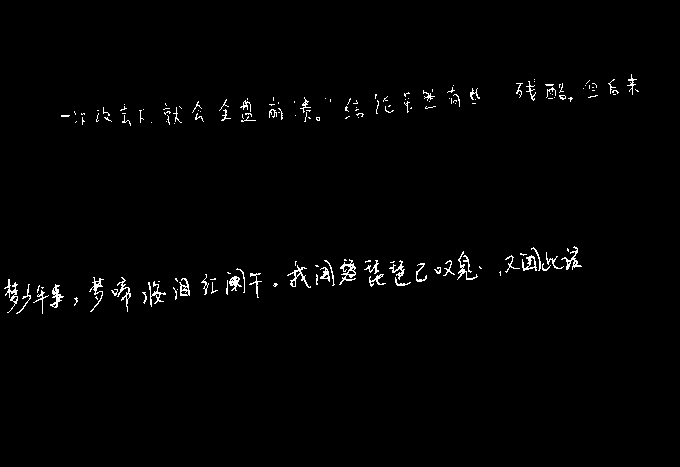 一次攻击下就会全盘崩溃。"结论虽然有些 残酷,但后来
梦少年事,梦啼妆泪红阑干。我闻琵琶已叹息,又闻此语